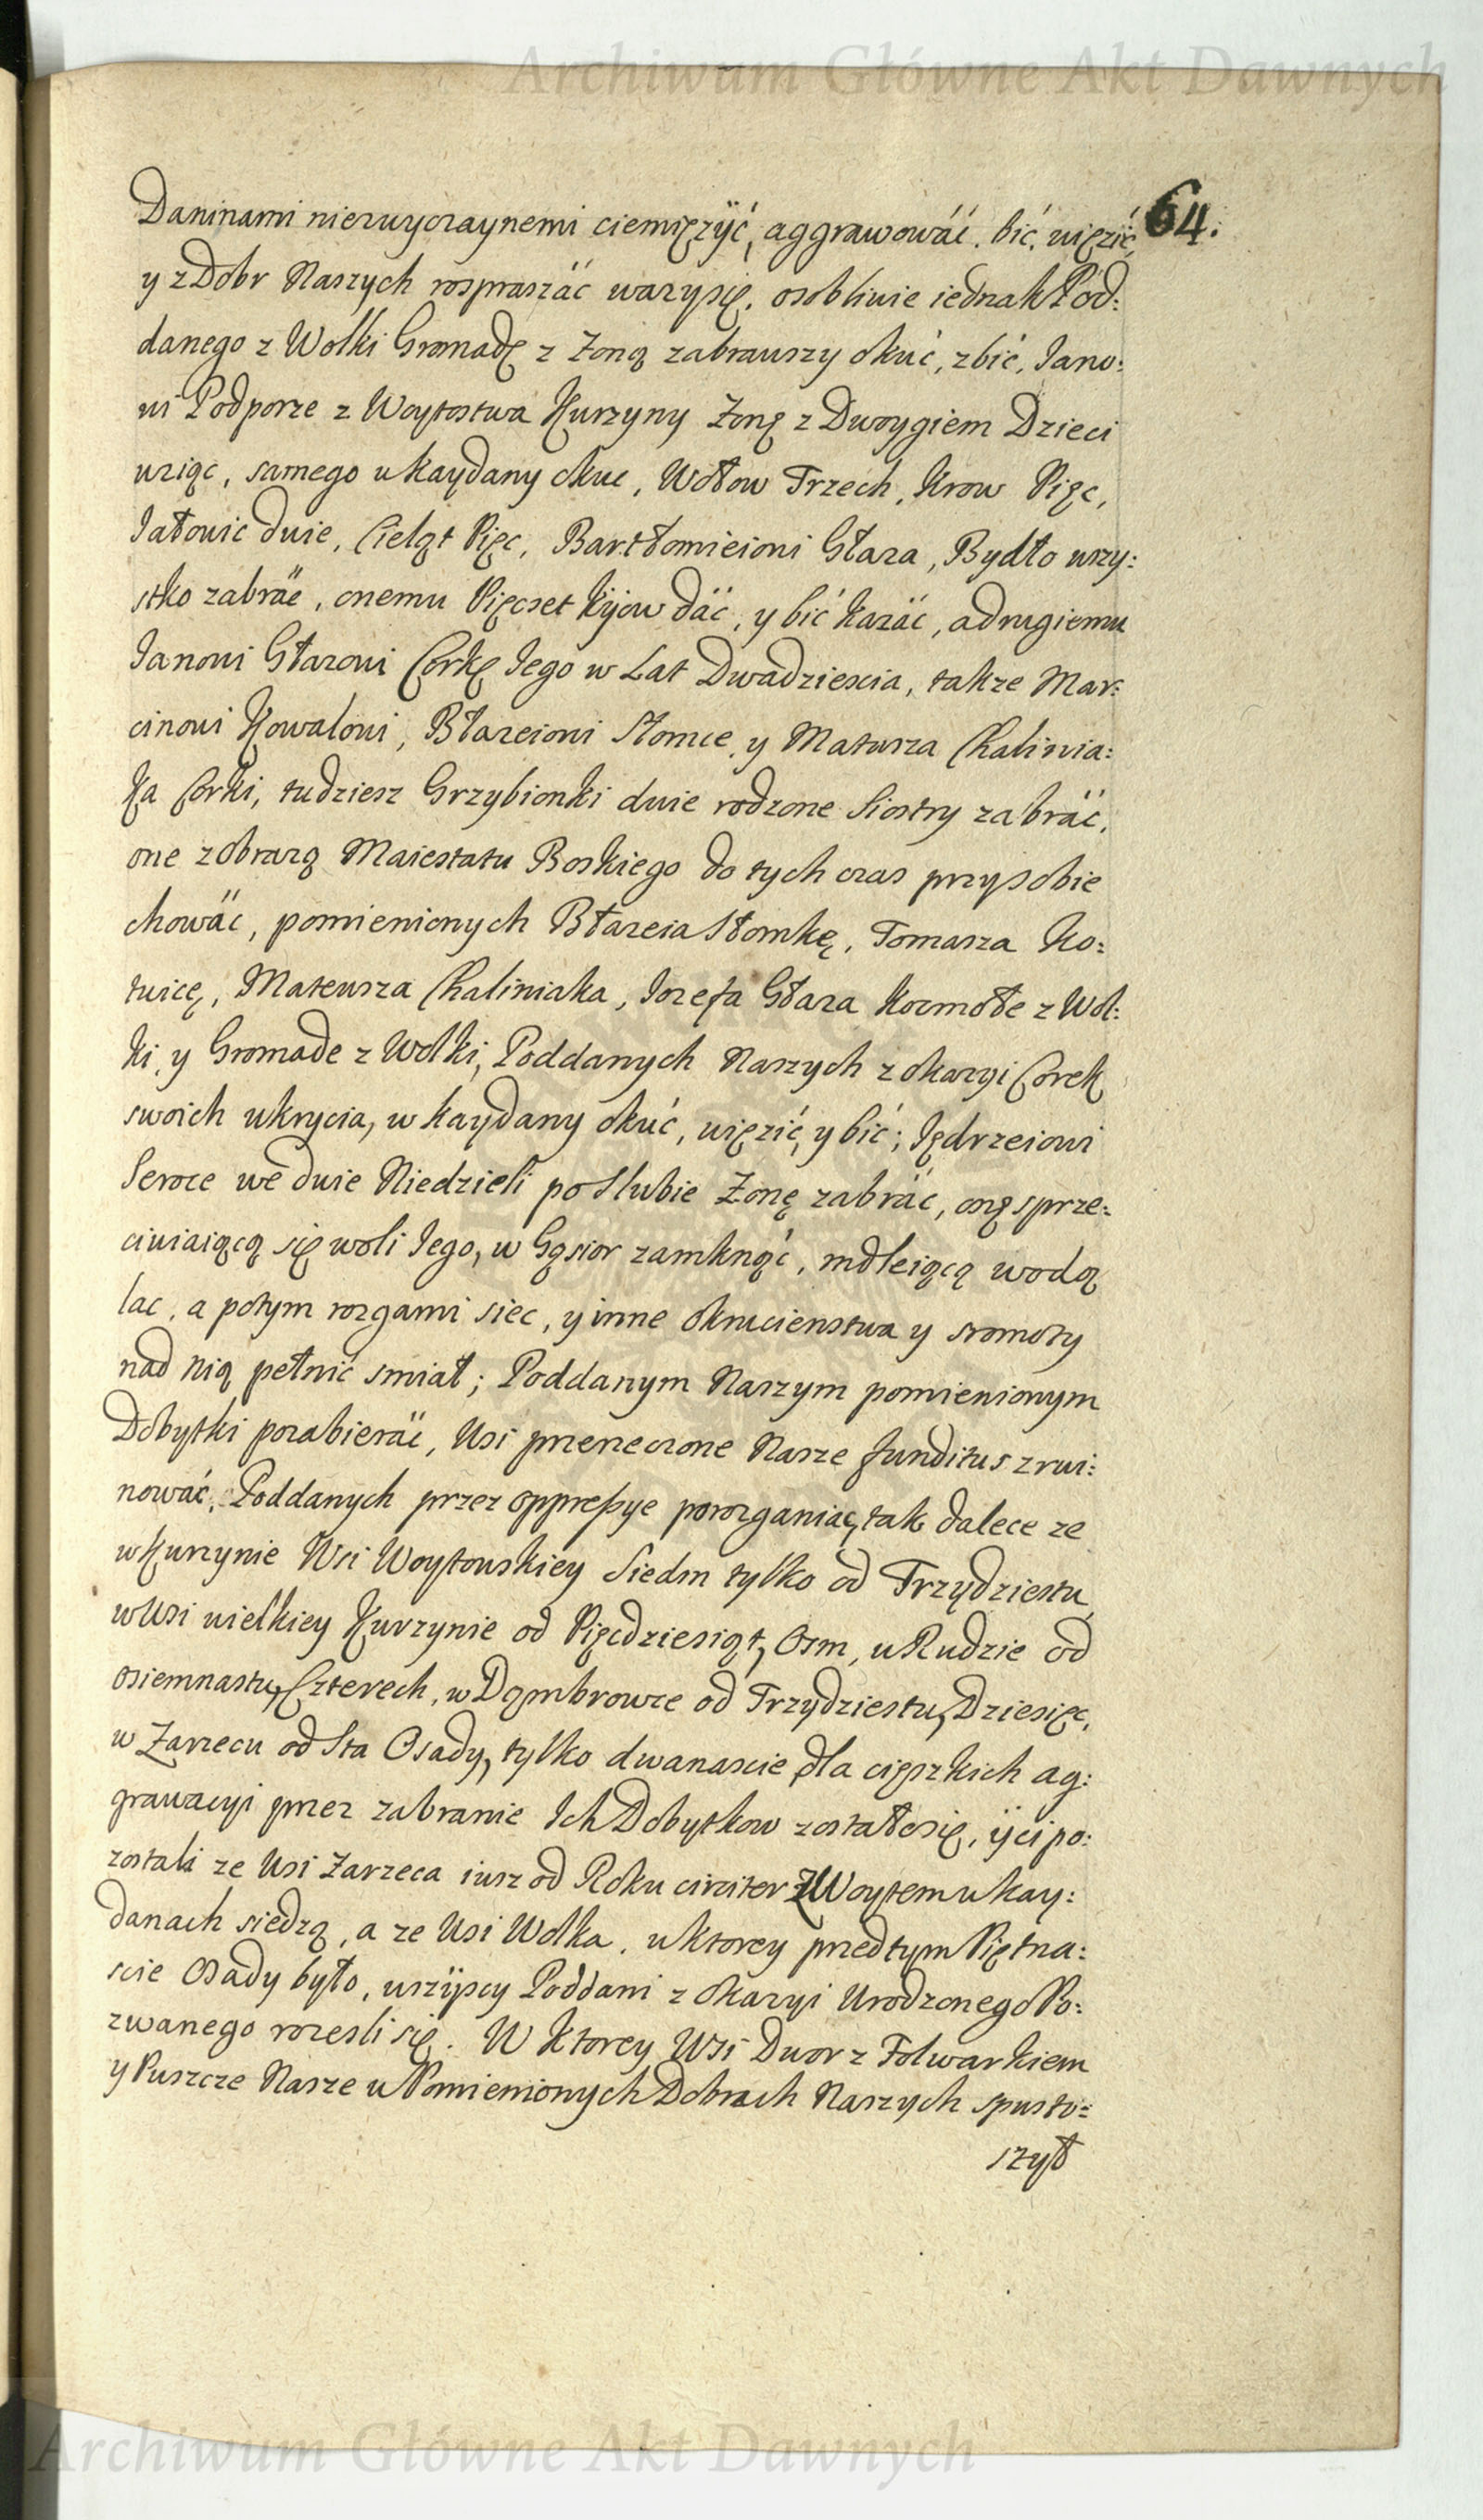 Archiwum Główne Akt Dawnych
64.
Daninami niezwyczaynemi ciemięzÿć, aggrawowáć, bić, więzić
y z Dobr Naszych rospraszáć wazysię, osobliwie iednak Pod:
danego z Wolki Gromadę z Zoną zabrawszy okuć, zbić, Iano:
wi Podporze z Woytostwa Kurzyny Zonę z Dwoygiem Dzieci
wziąc, samego w kaydany okuc, Wołow Trzech, Krow Pięc,
Iałowic dwie, Cieląt Pięc, Bartłomieiowi Głaza, Bydło wszy:
stko zabräc, onemu Pięcset Kijow däć, y bić kazäć, a drugiemu
Ianowi Głazowi Corkę Iego w Lat Dwadziescia, takze Mar:
cinowi Kowalowi, Błazeiowi Słomce, y Matusza Chalinia:
ka Corki, tudziesz Grzybionki dwie rodzone Siostry zabräć,
one z obrazą Maiestatu Boskiego do tych czas przy sobie
chowäc, pomienionych Błazeia Słomkę, Tomasza Ko:
twicę, Mateusza Chaliniaka, Iozefa Głaza Kozmołe z Wol:
ki, y Gromade z Wolki, Poddanych Naszych z okazyi Corek
swoich ukrycia, w kaydany okuć, więzić, y bić; Iędrzeiowi
Seroce we dwie Niedzieli po Slubie Zonę zabräc, onę sprze:
ciwiaiącą się woli Iego, w Gąsior zamknąć, mdleiącą wodą
lac, a potym rozgami siec, y inne okrucienstwa y sromoty
nad nią pełnić smiał; Poddanym Naszym pomienionym
Dobytki pozabieräć, Wsi przerzeczone Nasze funditus zrui:
nować, Poddanych przez oppressye porozganiac, tak dalece ze
w Kurzynie Wsi Woytowskiey Siedm tylko od Trzydziestu,
w Wsi wielkiey Kurzynie od Pięcdziesiąt, Osm, w Rudzie od
osiemnastu, Czterech, w Dąmbrowce od Trzydziestu, Dziesięc,
w Zarzecu od Sta Osady, tylko dwanascie dla cięszkich ag:
grawacyi przez zabranie Ich Dobytkow zostało się, ÿ ci po:
zostali ze Wsi Zarzeca iusz od Roku circiter z Woytem w kay:
danach siedzą, a ze Wsi Wolka, w ktorey przedtym Piętna:
scie Osady było, wszÿscy Poddani z okazyi Urodzonego Po:
zwanego rozesli się. W Ktorey Wsi Dwor z Folwarkiem
y Puszcze Nasze w Pomienionych Dobrach Naszych spusto:
szył
Archiwum Główne Akt Dawnych